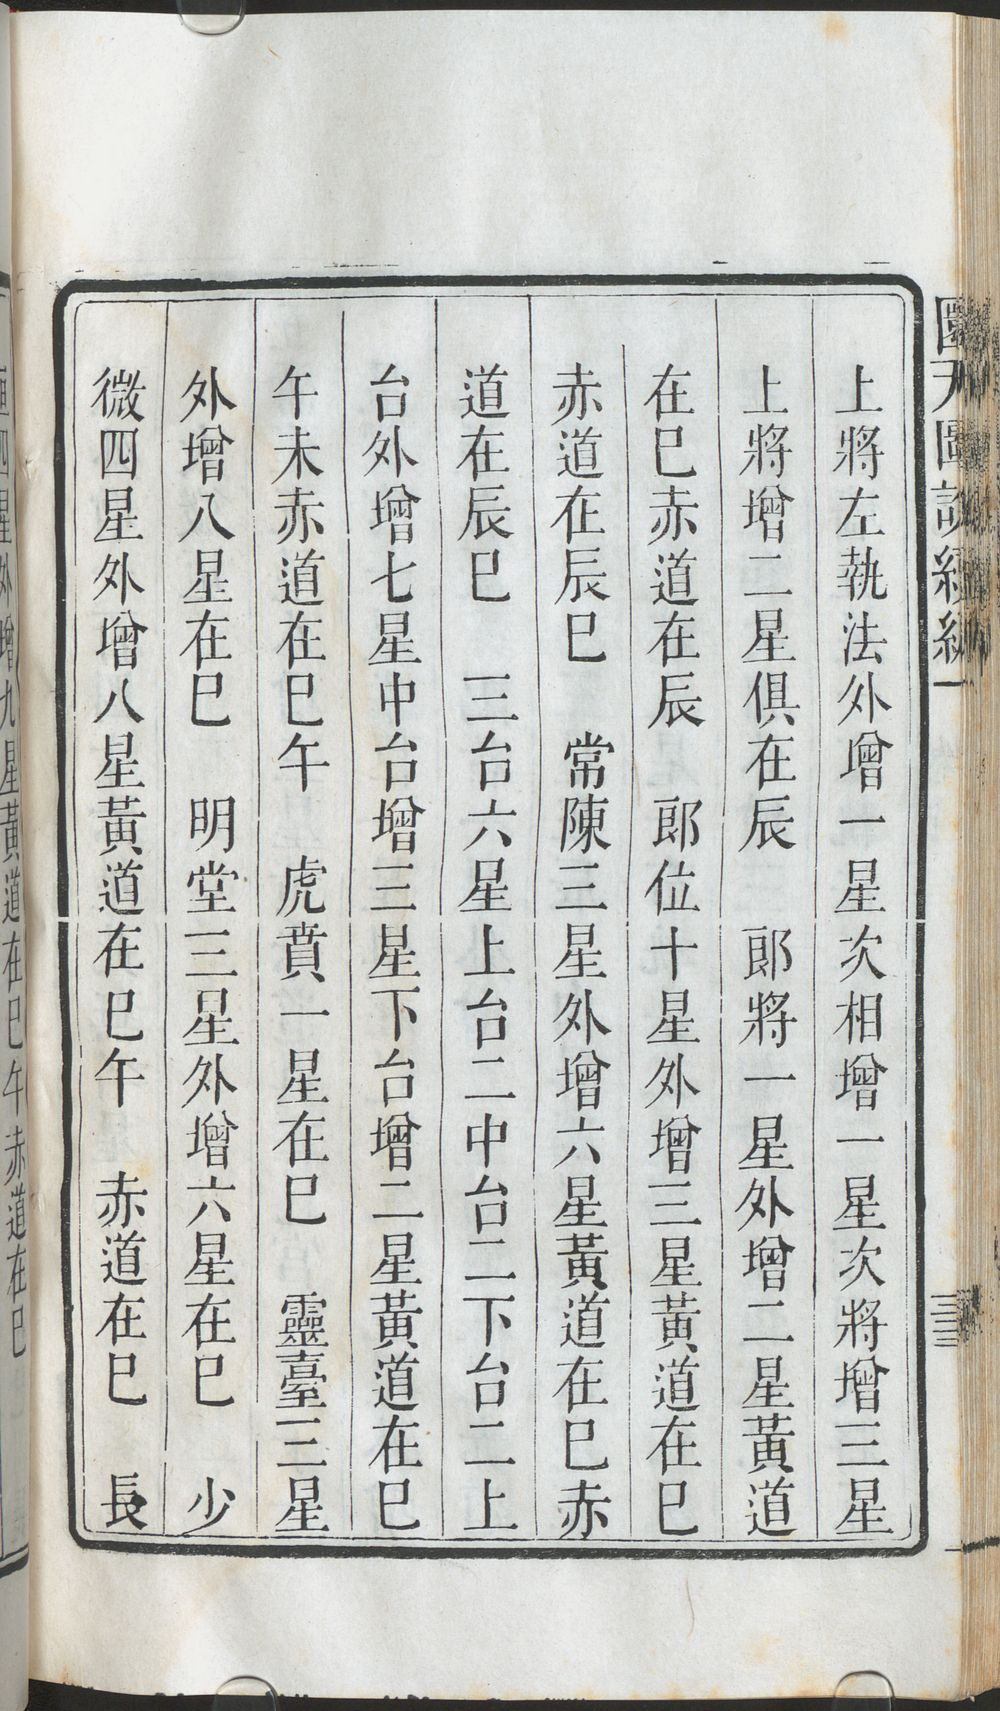 上將左執法外增一星次相增一星次將增三星
上將增二星俱在辰　郎將一星外增二星黃道
在巳赤道在辰　郎位十星外增三星黃道在巳
赤道在辰巳　常陳三星外增六星黃道在巳赤
道在辰巳　三台六星上台二中台二下台二上
台外增七星中台增三星下台增二星黃道在巳
午未赤道在巳午　虎賁一星在巳　靈臺三星
外增八星在巳　明堂三星外增六星在巳　少
微四星外增八星黃道在巳午　赤道在巳　長
四星外增九星黃道在巳午赤道在巳